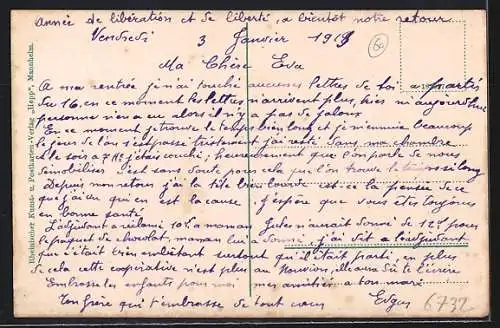 année de libération et de liberté, a bientôt notre retour
Vendredi 3 Janvier 1919
60
Ma Chère Eva
A ma rentrée je n'ai touché aucunes lettres de toi a partir
du 16, en ce moment les lettres n'arrivent plus, hier ni aujourd'hui
personne n'en a eu alors il n'y a pas de jaloux
En ce moment je trouve le temps bien long et je m'ennuie beaucoup
le jour de l'an s'est passé tristement j'ai resté dans ma chambre
et le soir a 7 h. j'étais couché; heureusement que l'on parle de nous
démobiliser c'est sans doute pour cela que l'on trouve le temps si long
Depuis mon retour j'ai la tête bien lourde est-ce la pensée de ce
que j'ai vu qui en est la cause, j'espère que vous êtes toujours
en bonne santé
L'adjudant a réclamé 10f. a maman Jules n'aurait donné de 12f. pour
le paquet de chocolat, maman lui a donné j'ai dit a l'adjudant
que c'était bien embêtant surtout qu'il était parti, en plus
de cela cette coopérative n'est plus au Nouvion, il aura dû le lui écrire
Embrasse les enfants pour moi mes amitiés a ton mari
Ton frère qui t'embrasse de tout cœur Edgar
6732
Rheinischer Kunst- u. Postkarten-Verlag „Hepp", Mannheim.